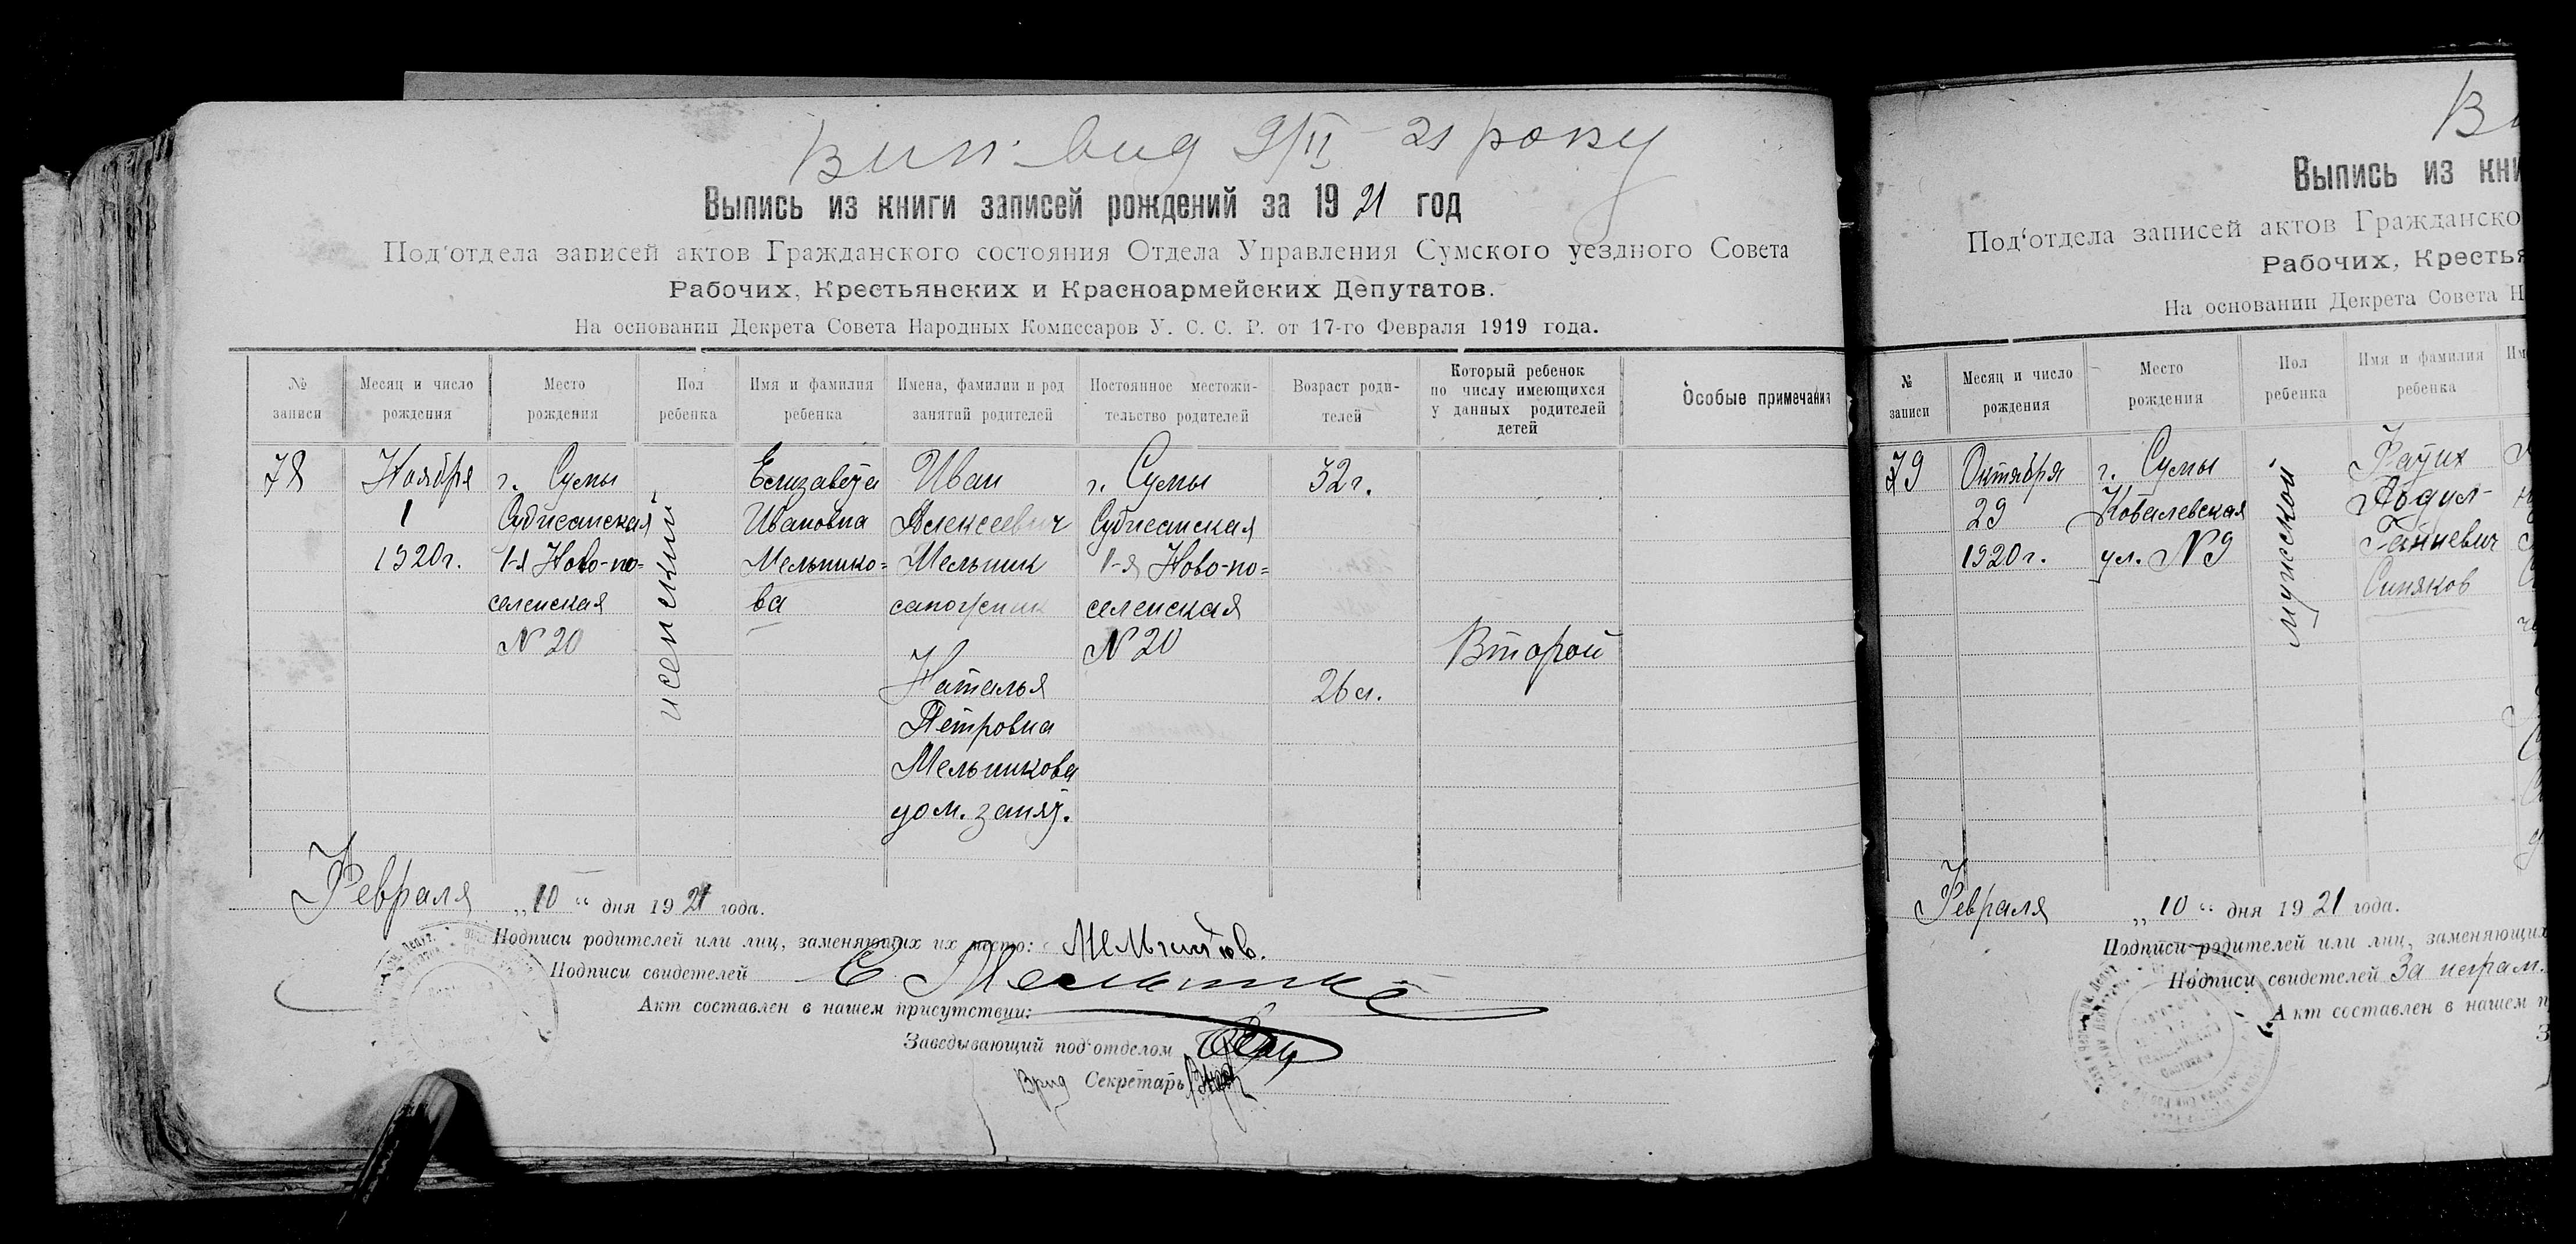 вид 9/II 21 року
Выпись из книги записей рождений за 1921 год
Под‘отдела записей актов Гражданского состояния Отдела Управления Сумского уездного Совета
Рабочих, Крестьянских и Красноармейских Депутатов.
На основании Декрета Совета Народных Комиссаров У. С. С. Р. от 17-го Февраля 1919 года.
№ записи
Месяц и число рождения
Место рождения
Пол ребенка
Имя и фамилия ребенка
Имена, фамилии и род занятий родителей
Постоянное местожи-
тельство родителей
Возраст роди-
телей
Который ребенок
по числу имеющихся
у данных родителей
детей
Особые примечания
78
Ноября
1
1920г.
г. Сумы
1-я Ново-по=
селенская
N 20
женский
Елизавета
Ивановна
Мельнико=
ва
Иван
Алексеевич
Мельник
сапожник
Наталья
Петровна
Мельникова
дом. занят.
г. Сумы
1-я Ново-по=
селенская
N 20
32г.
26 л.
Второй
Февраля „10“ дня 1921 года.
Подписи родителей или лиц, заменяющих их место:
Подписи свидетелей
Акт составлен в нашем присутствии:
Заведывающий под‘отделом
Врид Секретарь
Выпись из кни
Под‘отдела записей актов Гражданско
Рабочих, Крестья
На основании Декрета Совета Н
№ записи
Месяц и число рождения
Место рождения
Пол ребенка
Имя и фамилия ребенка
79
Октября
29
1920г.
г. Сумы
Ковалевская
ул. N 9
мужской
Абдул-
Ганиевич
Синяков
Февраля „10“ дня 1921 года.
Подписи родителей или лиц, заменяющих
Подписи свидетелей За неграм.
Акт составлен в нашем п